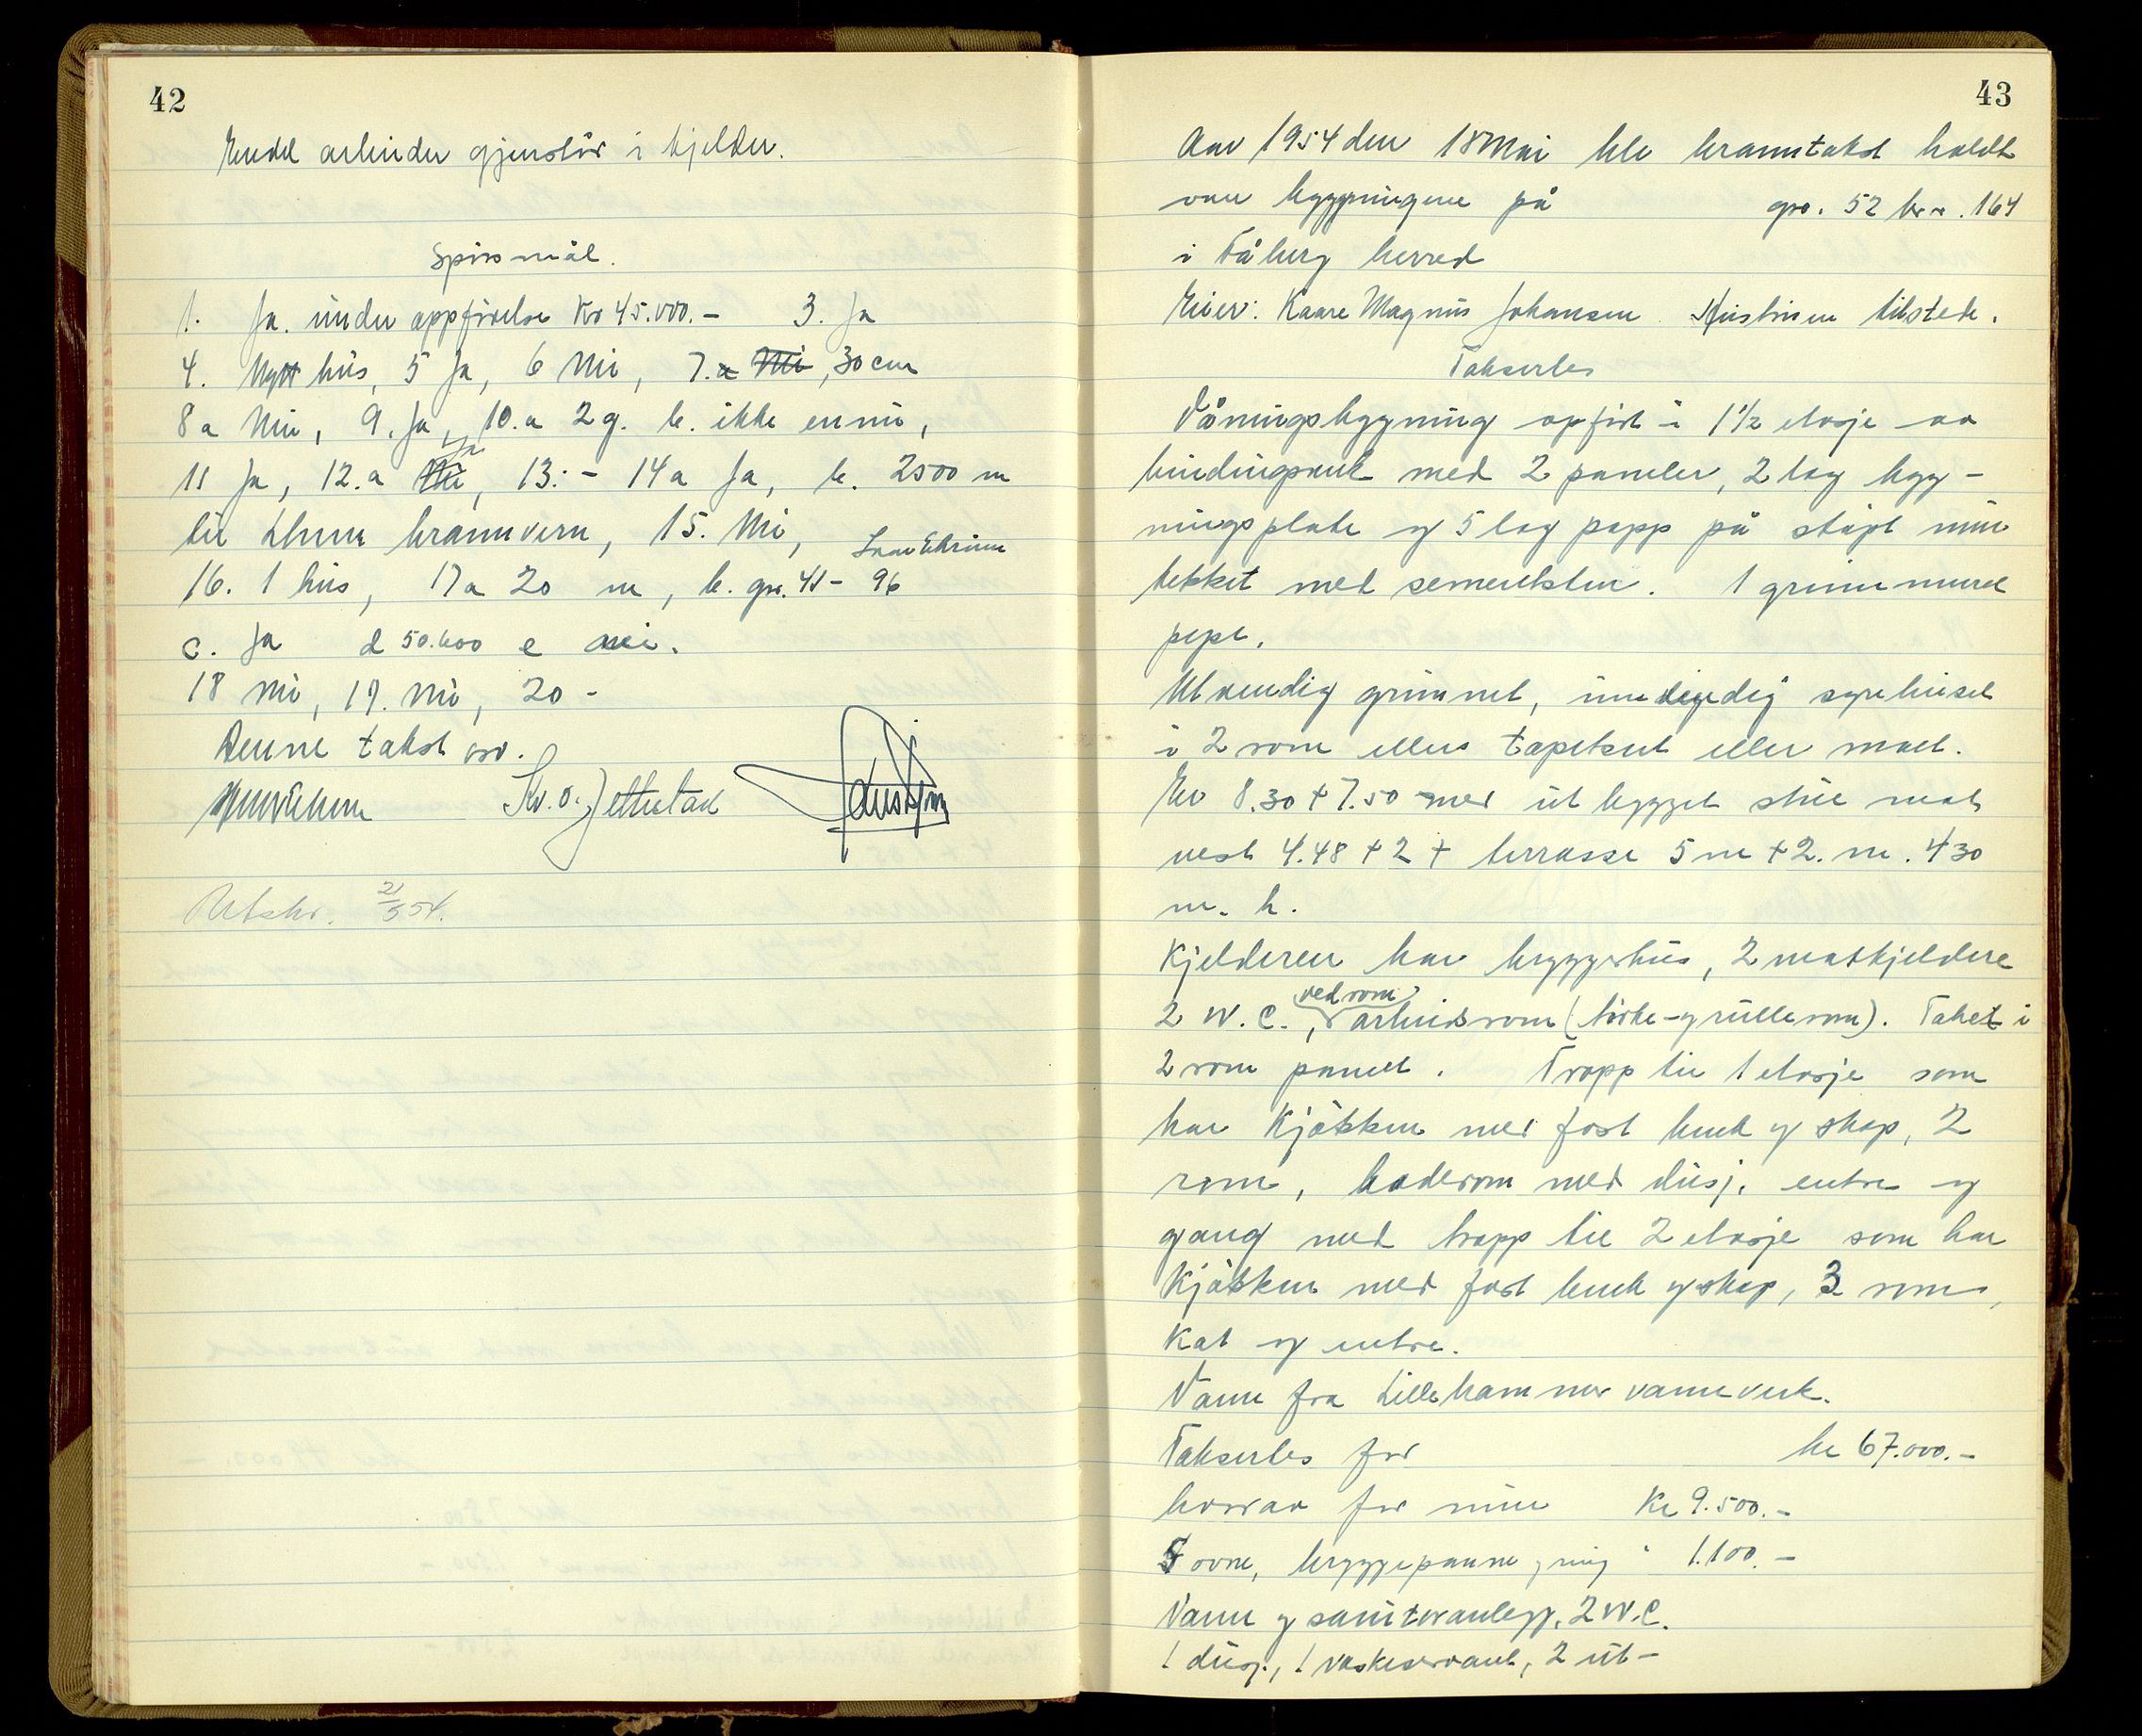 42
Endel arbeider gjenstår i kjelder.
Spörsmål.
1. Ja. under oppförelse Kr 45.000.- 3. Ja
4. Nytt hus, 5 Ja, 6 Nei, 7.a Nei, 30 cm
8a Nei, 9. Ja, 10.a 2 g. b. ikke ennu,
Ja
11 Ja, 12.a Nei, 13.- 14a Ja, b. 2500 m
til Lhmr brannvern, 15. Nei,
16. 1 hus, 17a 20 m, b. gnr. 41 - 96
c. Ja d 50.600 e nei.
18 Nei, 19. Nei, 20 -
Denne takst osv.
Utskr. 21/5 54.
43
Aar 1954 den 18 Mai ble branntakst holdt
over bygningene på gnr. 52 br.nr. 164
i Fåberg herred
Eier: Kaare Magnus Johansen Hustruen tilstede.
Takserles
Våningsbygning opfört i 1 1/2 etasje av
bindingsverk med 2 paneler, 2 lag byg-
ningsplate og 5 lag papp på stöpt mur
tekket med sementsten. 1 grunnmuret
pipe.
Utvendig grunnet, innvendig sponhuset
i 2 rom ellers tapetsert eller malt.
Er 8.30 + 7.50 med ut bygget stue mot
vest 4.48 + 2 + terrasse 5 m + 2. m. 4 30
m. h.
Kjelderen har bryggerhus, 2 matkjeldere
vedrom
2 W.C., arbeidsrom (törke- og rullerom). Taket i
2 rom panelt. Trapp til 1 etasje som
har Kjökken med fast benk og skap, 2
rom, baderom med dusj, entre og
gang med trapp til 2 etasje som har
Kjökken med fast benk og skap, 3 rom,
Kot og entre.
Vann fra Lillehammer vannverk.
Takserles for kr 67.000.-
hvorav for mur Kr 9.500.-
5 ovne, bryggepanne og ring " 1.100.-
Vann og sanitæranlegg, 2 W.C.
1 dusj, 1 vaskeservant, 2 ut-